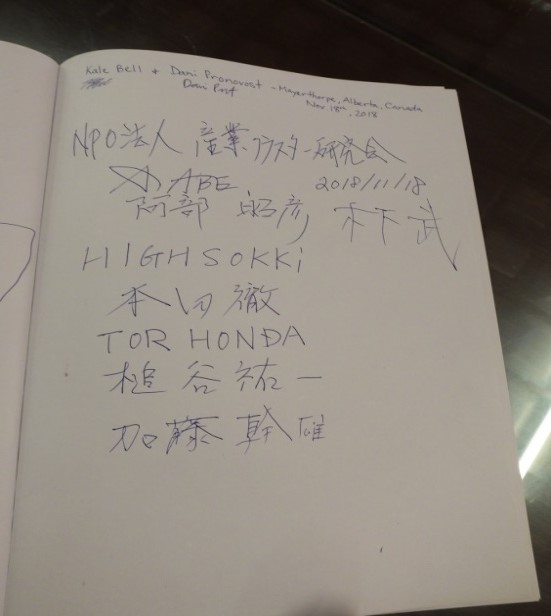 Kale Bell + Dani Pronovost - Mayerthorpe, Alberta, Canada
Nov. 18th, 2018
NPO法人 産業クラスター研究会
ABE 2018/11/18
阿部 昭彦 木下 武
HIGHSOKKi
本田 徹
TOR HONDA
槌谷祐一
加藤 幹雄